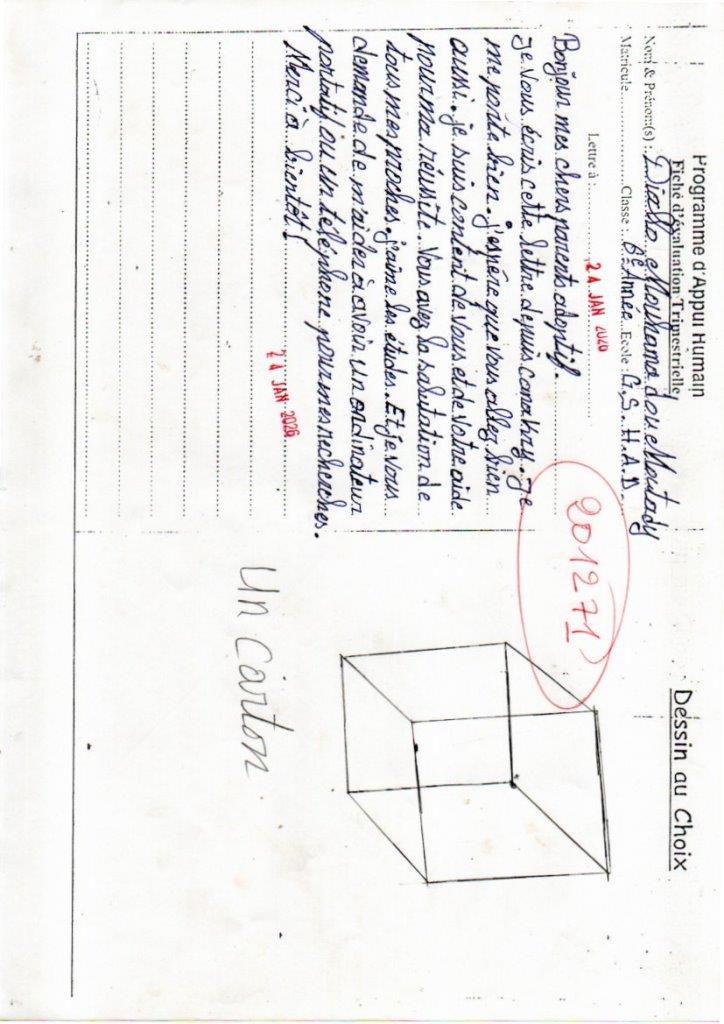 Programme d'Appui Humain
Fiche d'évaluation Trimestrielle
Nom & Prénom(s) : Diallo Mouhamadou Moutady
Matricule Classe : 6e Année Ecole : G.S. H.A.D.
Lettre à : 24 JAN 2020
Bonjour mes chers parents adoptif.
Je vous écris cette lettre depuis conakry. Je
me porte bien. j'espère que vous allez bien
aussi. je suis content de vous et de votre aide
pour ma réussite. Vous avez la salutation de
tous mes proches. j'aime les études. Et je vous
demande de m'aider à avoir un ordinateur
portatif ou un téléphone pour mes recherches.
Merci à bientôt !
24 JAN 2020
201271
Dessin au Choix
Un carton